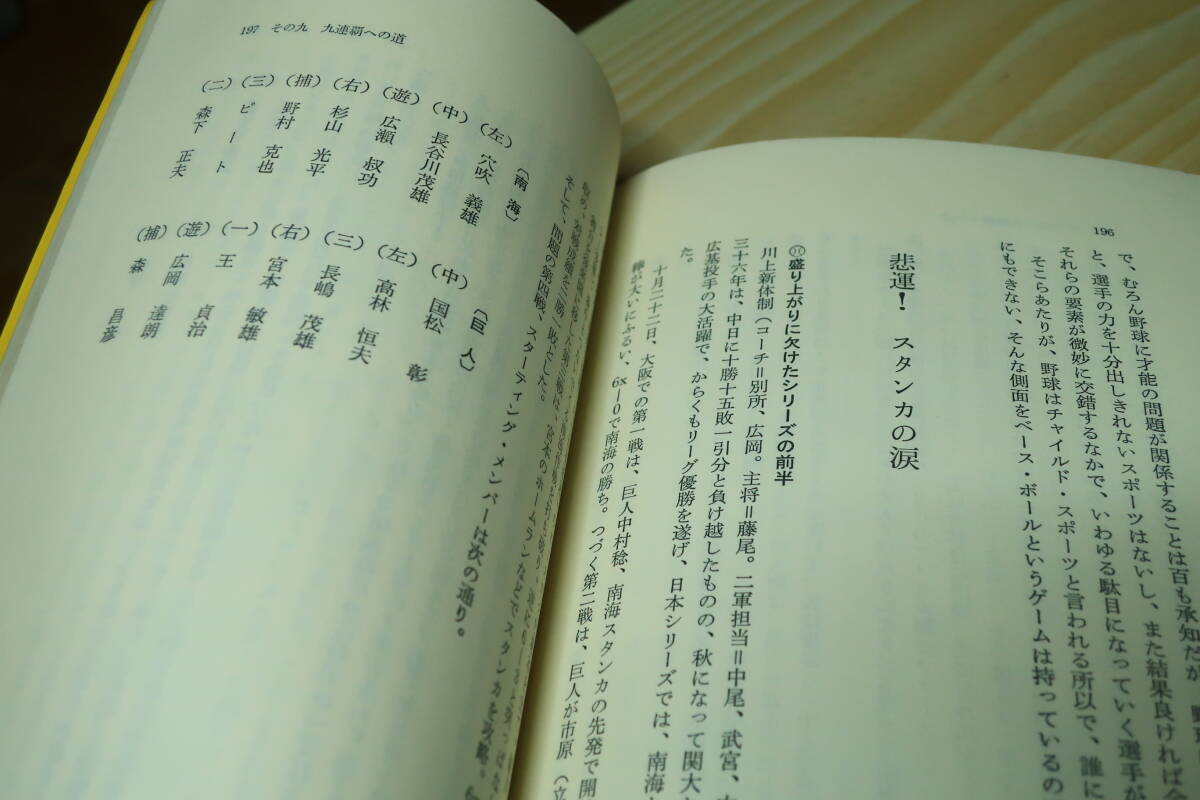 196
で、むろん野球に才能の問題が関係することは百も承知だが
と、選手の力を十分出しきれないスポーツはないし、また結果良ければ
それらの要素が微妙に交錯するなかで、いわゆる駄目になっていく選手が
そこらあたりが、野球はチャイルド・スポーツと言われる所以で、誰に
にもできない、そんな側面をベース・ボールというゲームは持っているの
悲運！　スタンカの涙
⑰盛り上がりに欠けたシリーズの前半
川上新体制（コーチ＝別所、広岡。主将＝藤尾。二軍担当＝中尾、武宮、
三十六年は、中日に十勝十五敗一引分と負け越したものの、秋になって関大
広基投手の大活躍で、からくもリーグ優勝を遂げ、日本シリーズでは、南海
た。
十月二十二日、大阪での第一戦は、巨人中村稔、南海スタンカの先発で開
棒が大いにふるい、6x―0で南海の勝ち。つづく第二戦は、巨人が市原（立
197　その九　九連覇への道
宮本のホームランなどでスタンカを攻略。
そして、問題の第四戦、スターティング・メンバーは次の通り。
〔南　海〕　〔巨　人〕
（左）穴吹　義雄　（中）国松　彰
（中）長谷川茂雄　（左）高林　恒夫
（遊）広瀬　叔功　（三）長嶋　茂雄
（右）杉山　光平　（右）宮本　敏雄
（捕）野村　克也　（一）王　貞治
（三）ピート　（遊）広岡　達朗
（二）森下　正夫　（捕）森　昌彦